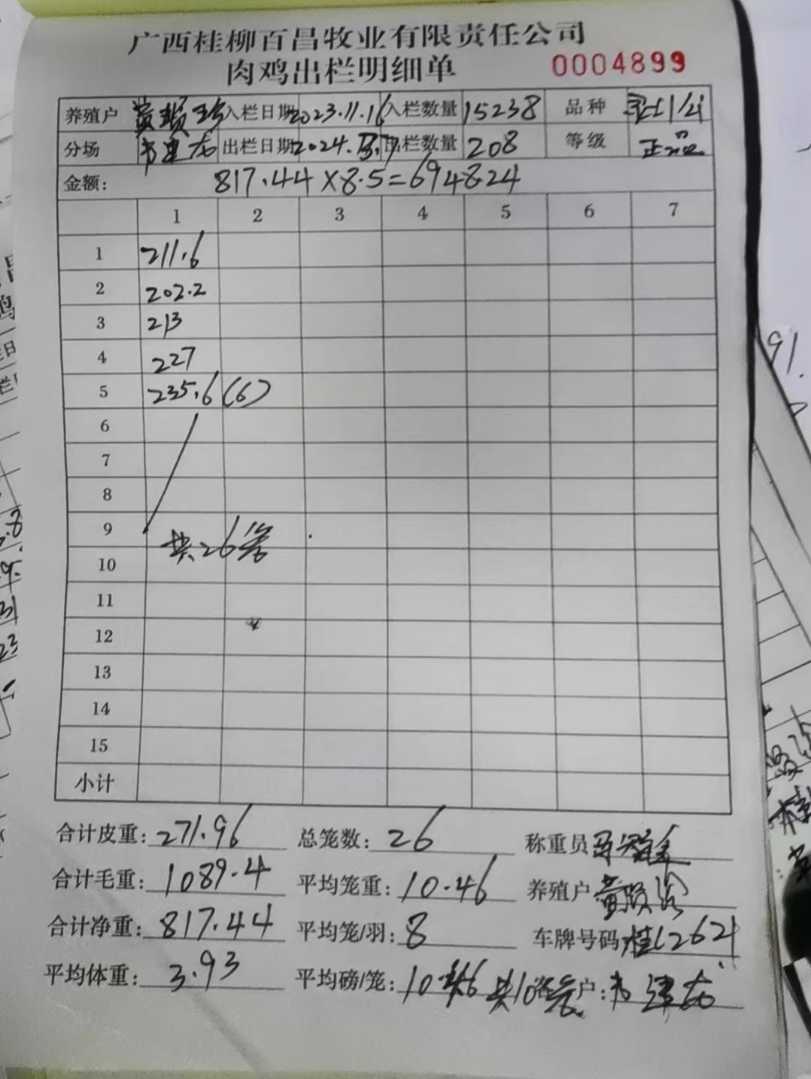 广西桂柳百昌牧业有限责任公司
肉鸡出栏明细单 0004899
养殖户 黄 入栏日期 2023.11.16 入栏数量 15238 品种
分场 韦建龙 出栏日期 2024. 出栏数量 208 等级 正品
金额: 817.44×8.5=694824
1 2 3 4 5 6 7
1 211.6
2 202.2
3 213
4 227
5 235.6 (6)
6
7
8
9
共26笼
10
11
12
13
14
15
小计
合计皮重: 271.96 总笼数: 26 称重员
合计毛重: 1089.4 平均笼重: 10.46 养殖户 黄
合计净重: 817.44 平均笼/羽: 8 车牌号码 桂L2621
平均体重: 3.93 平均磅/笼: 10.46 共10 户: 韦建龙